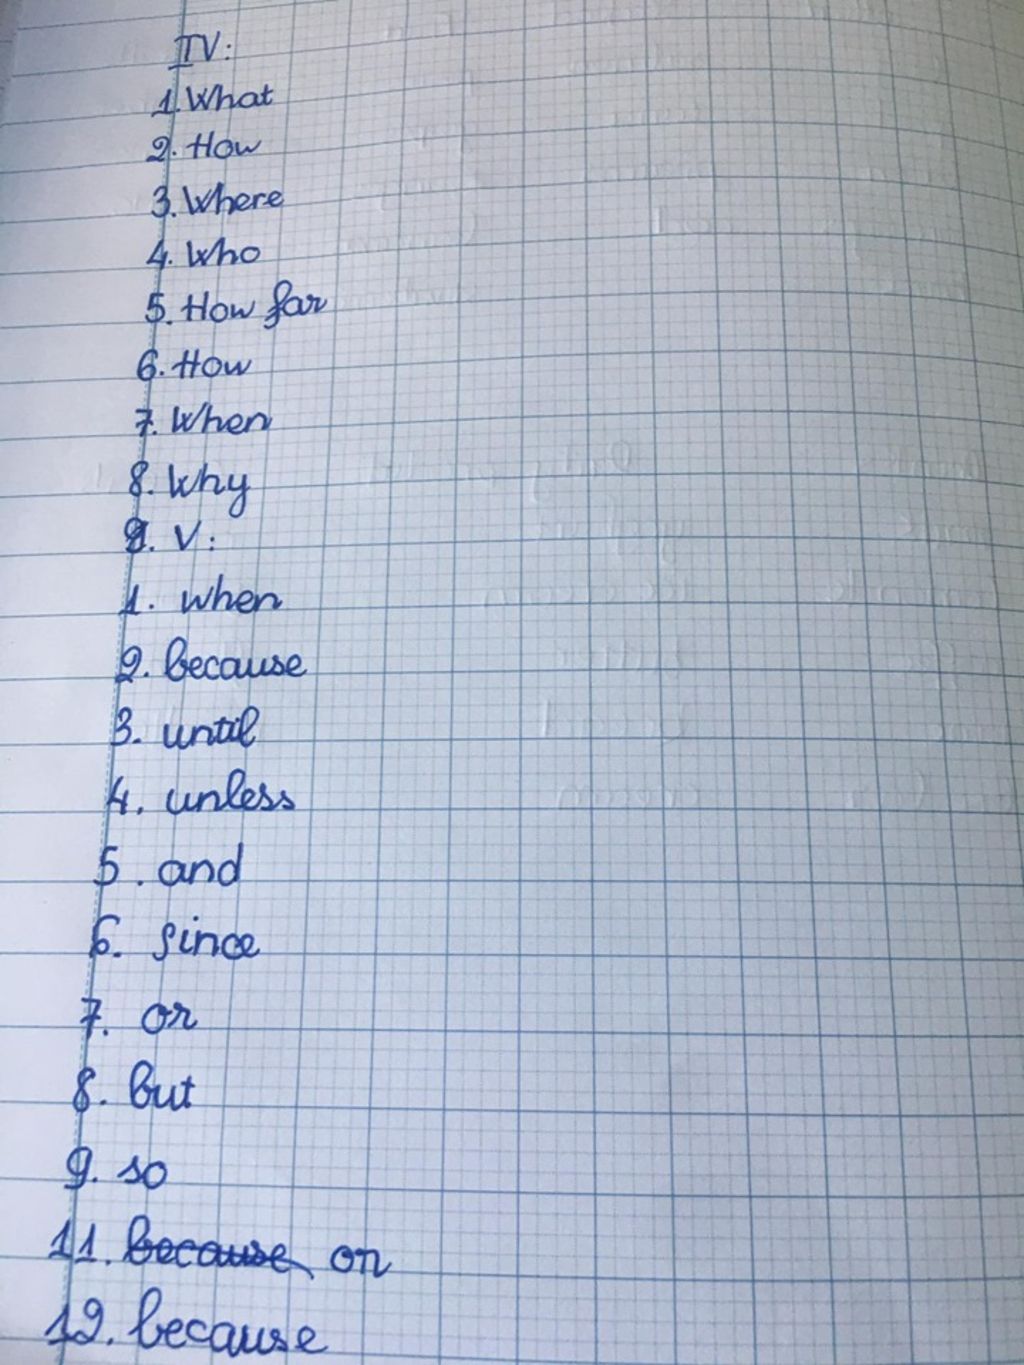 IV:
1. What
2. How
3. Where
4. Who
5. How far
6. How
7. When
8. Why
V:
1. when
2. because
3. until
4. unless
5. and
6. since
7. or
8. but
9. so
11. because or
12. because